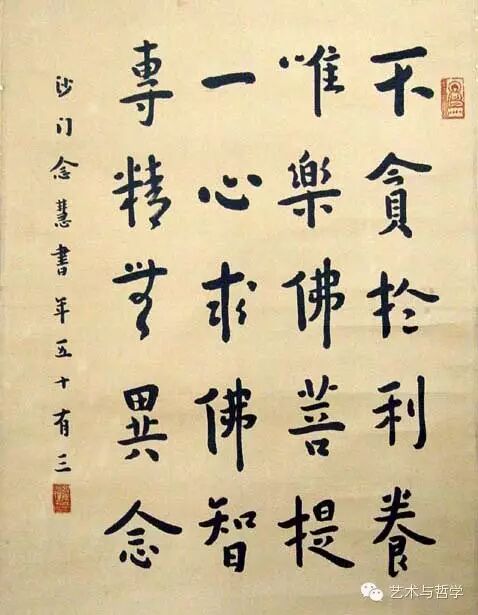 不貪於利養
唯樂佛菩提
一心求佛智
專精無異念
沙门念慧書年五十有三
艺术与哲学